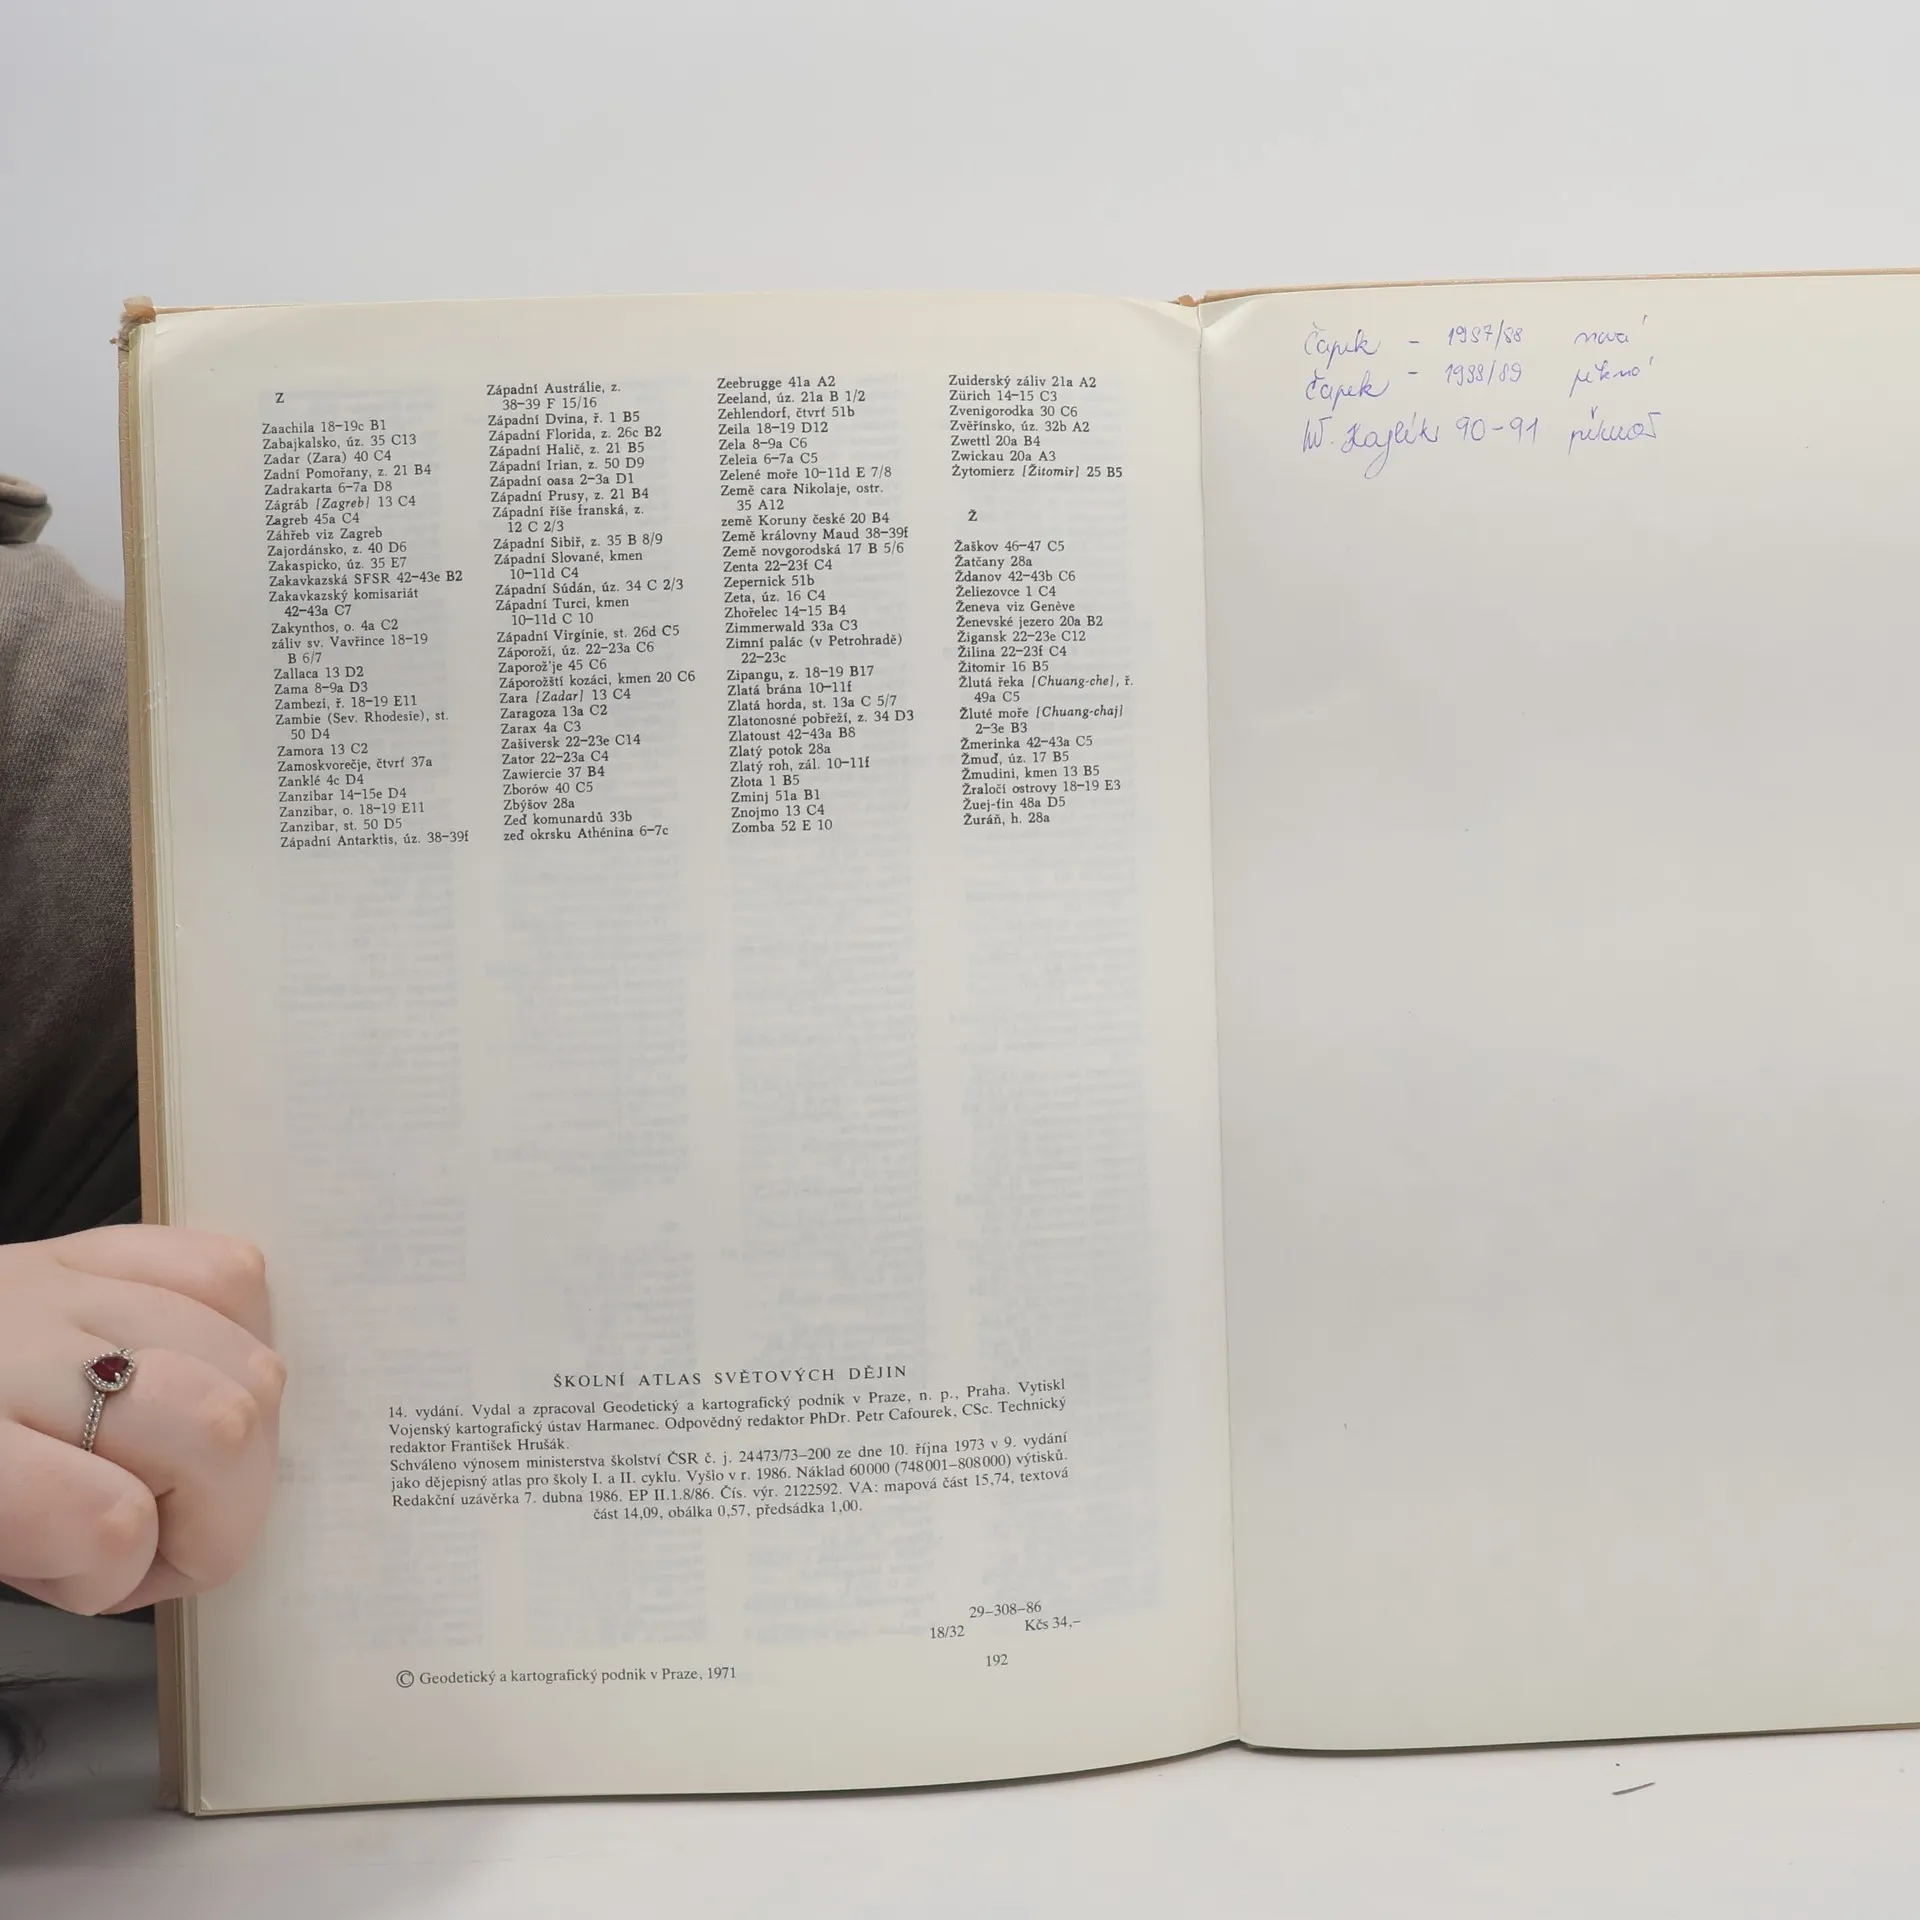 Z
Zaachila 18–19c B1
Zabajkalsko, úz. 35 C13
Zadar (Zara) 40 C4
Zadní Pomořany, z. 21 B4
Zadrakarta 6–7a D8
Zágráb [Zagreb] 13 C4
Zagreb 45a C4
Záhřeb viz Zagreb
Zajordánsko, z. 40 D6
Zakaspicko, úz. 35 E7
Zakavkazská SFSR 42–43e B2
Zakavkazský komisariát
42–43a C7
Zakynthos, o. 4a C2
záliv sv. Vavřince 18–19
B 6/7
Zallaca 13 D2
Zama 8–9a D3
Zambezi, ř. 18–19 E11
Zambie (Sev. Rhodesie), st.
50 D4
Zamora 13 C2
Zamoskvorečje, čtvrť 37a
Zanklé 4c D4
Zanzibar 14–15e D4
Zanzibar, o. 18–19 E11
Zanzibar, st. 50 D5
Západní Antarktis, úz. 38–39f
Západní Austrálie, z.
38–39 F 15/16
Západní Dvina, ř. 1 B5
Západní Florida, z. 26c B2
Západní Halič, z. 21 B5
Západní Irian, z. 50 D9
Západní oasa 2–3a D1
Západní Prusy, z. 21 B4
Západní říše franská, z.
12 C 2/3
Západní Sibiř, z. 35 B 8/9
Západní Slované, kmen
10–11d C4
Západní Súdán, úz. 34 C 2/3
Západní Turci, kmen
10–11d C 10
Západní Virgínie, st. 26d C5
Záporoží, úz. 22–23a C6
Zaporož'je 45 C6
Záporožští kozáci, kmen 20 C6
Zara [Zadar] 13 C4
Zaragoza 13a C2
Zarax 4a C3
Zašiversk 22–23e C14
Zator 22–23a C4
Zawiercie 37 B4
Zborów 40 C5
Zbýšov 28a
Zeď komunardů 33b
zeď okrsku Athénina 6–7c
Zeebrugge 41a A2
Zeeland, úz. 21a B 1/2
Zehlendorf, čtvrť 51b
Zeila 18–19 D12
Zela 8–9a C6
Zeleia 6–7a C5
Zelené moře 10–11d E 7/8
Země cara Nikolaje, ostr.
35 A12
země Koruny české 20 B4
Země královny Maud 38–39f
Země novgorodská 17 B 5/6
Zenta 22–23f C4
Zepernick 51b
Zeta, úz. 16 C4
Zhořelec 14–15 B4
Zimmerwald 33a C3
Zimní palác (v Petrohradě)
22–23c
Zipangu, z. 18–19 B17
Zlatá brána 10–11f
Zlatá horda, st. 13a C 5/7
Zlatonosné pobřeží, z. 34 D3
Zlatoust 42–43a B8
Zlatý potok 28a
Zlatý roh, zál. 10–11f
Złota 1 B5
Zminj 51a B1
Znojmo 13 C4
Zomba 52 E 10
Zuiderský záliv 21a A2
Zürich 14–15 C3
Zvenigorodka 30 C6
Zvěřínsko, úz. 32b A2
Zwettl 20a B4
Zwickau 20a A3
Żytomierz [Žitomir] 25 B5
Ž
Žaškov 46–47 C5
Žatčany 28a
Ždanov 42–43b C6
Želiezovce 1 C4
Ženeva viz Genève
Ženevské jezero 20a B2
Žigansk 22–23e C12
Žilina 22–23f C4
Žitomir 16 B5
Žlutá řeka [Chuang-che], ř.
49a C5
Žluté moře [Chuang-chaj]
2–3e B3
Žmerinka 42–43a C5
Žmuď, úz. 17 B5
Žmudini, kmen 13 B5
Žraločí ostrovy 18–19 E3
Žuej-ťin 48a D5
Žuráň, h. 28a
ŠKOLNÍ ATLAS SVĚTOVÝCH DĚJIN
14. vydání. Vydal a zpracoval Geodetický a kartografický podnik v Praze, n. p., Praha. Vytiskl
Vojenský kartografický ústav Harmanec. Odpovědný redaktor PhDr. Petr Cafourek, CSc. Technický
redaktor František Hrušák.
Schváleno výnosem ministerstva školství ČSR č. j. 24473/73–200 ze dne 10. října 1973 v 9. vydání
jako dějepisný atlas pro školy I. a II. cyklu. Vyšlo v r. 1986. Náklad 60000 (748001–808000) výtisků.
Redakční uzávěrka 7. dubna 1986. EP II.1.8/86. Čís. výr. 2122592. VA: mapová část 15,74, textová
část 14,09, obálka 0,57, předsádka 1,00.
29–308–86
18/32 Kčs 34,–
192
© Geodetický a kartografický podnik v Praze, 1971
Čapek – 1987/88 nová
Čapek – 1988/89 pěkná
90–91